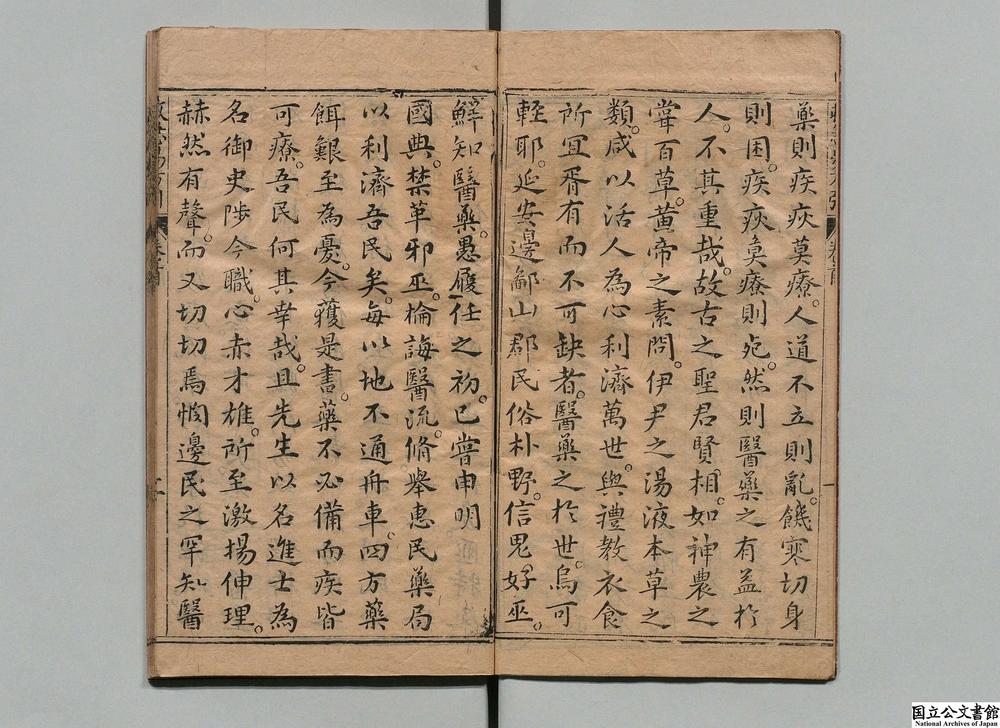 藥則疾疢莫療。人道不立則亂。饑寒切身
則困。疾疢莫療則死。然則醫藥之有益於
人。不其重哉。故古之聖君賢相。如神農之
嘗百草。黃帝之素問。伊尹之湯液本草之
類。咸以活人為心利濟萬世。與禮教衣食
所宜胥有而不可缺者。醫藥之於世。烏可
輕耶。延安邊鄙山郡民俗朴野。信鬼好巫。
鮮知醫藥。愚履任之初。已嘗申明
國典。禁革邪巫。掄誨醫流。脩舉惠民藥局
以利濟吾民矣。每以地不通舟車。四方藥
餌艱至為憂。今獲是書。藥不必備而疾皆
可療。吾民何其幸哉。且先生以名進士為
名御史陟今職。心赤才雄。所至激揚伸理。
赫然有聲。而又切切焉憫邊民之罕知醫
一
二
国立公文書館
National Archives of Japan